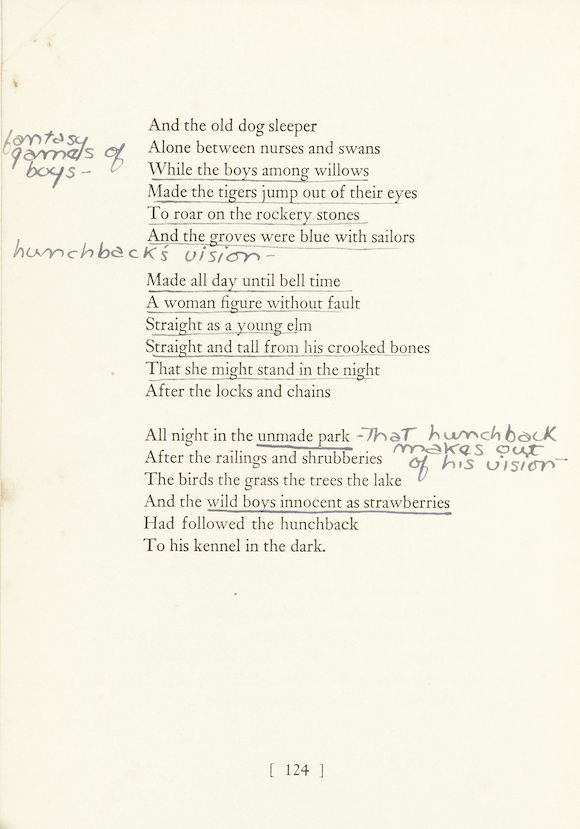 And the old dog sleeper
fantasy
games of
boys-
Alone between nurses and swans
While the boys among willows
Made the tigers jump out of their eyes
To roar on the rockery stones
And the groves were blue with sailors
hunchback's vision-
Made all day until bell time
A woman figure without fault
Straight as a young elm
Straight and tall from his crooked bones
That she might stand in the night
After the locks and chains
All night in the unmade park
-That hunchback
makes out
of his vision-
After the railings and shrubberies
The birds the grass the trees the lake
And the wild boys innocent as strawberries
Had followed the hunchback
To his kennel in the dark.
[ 124 ]